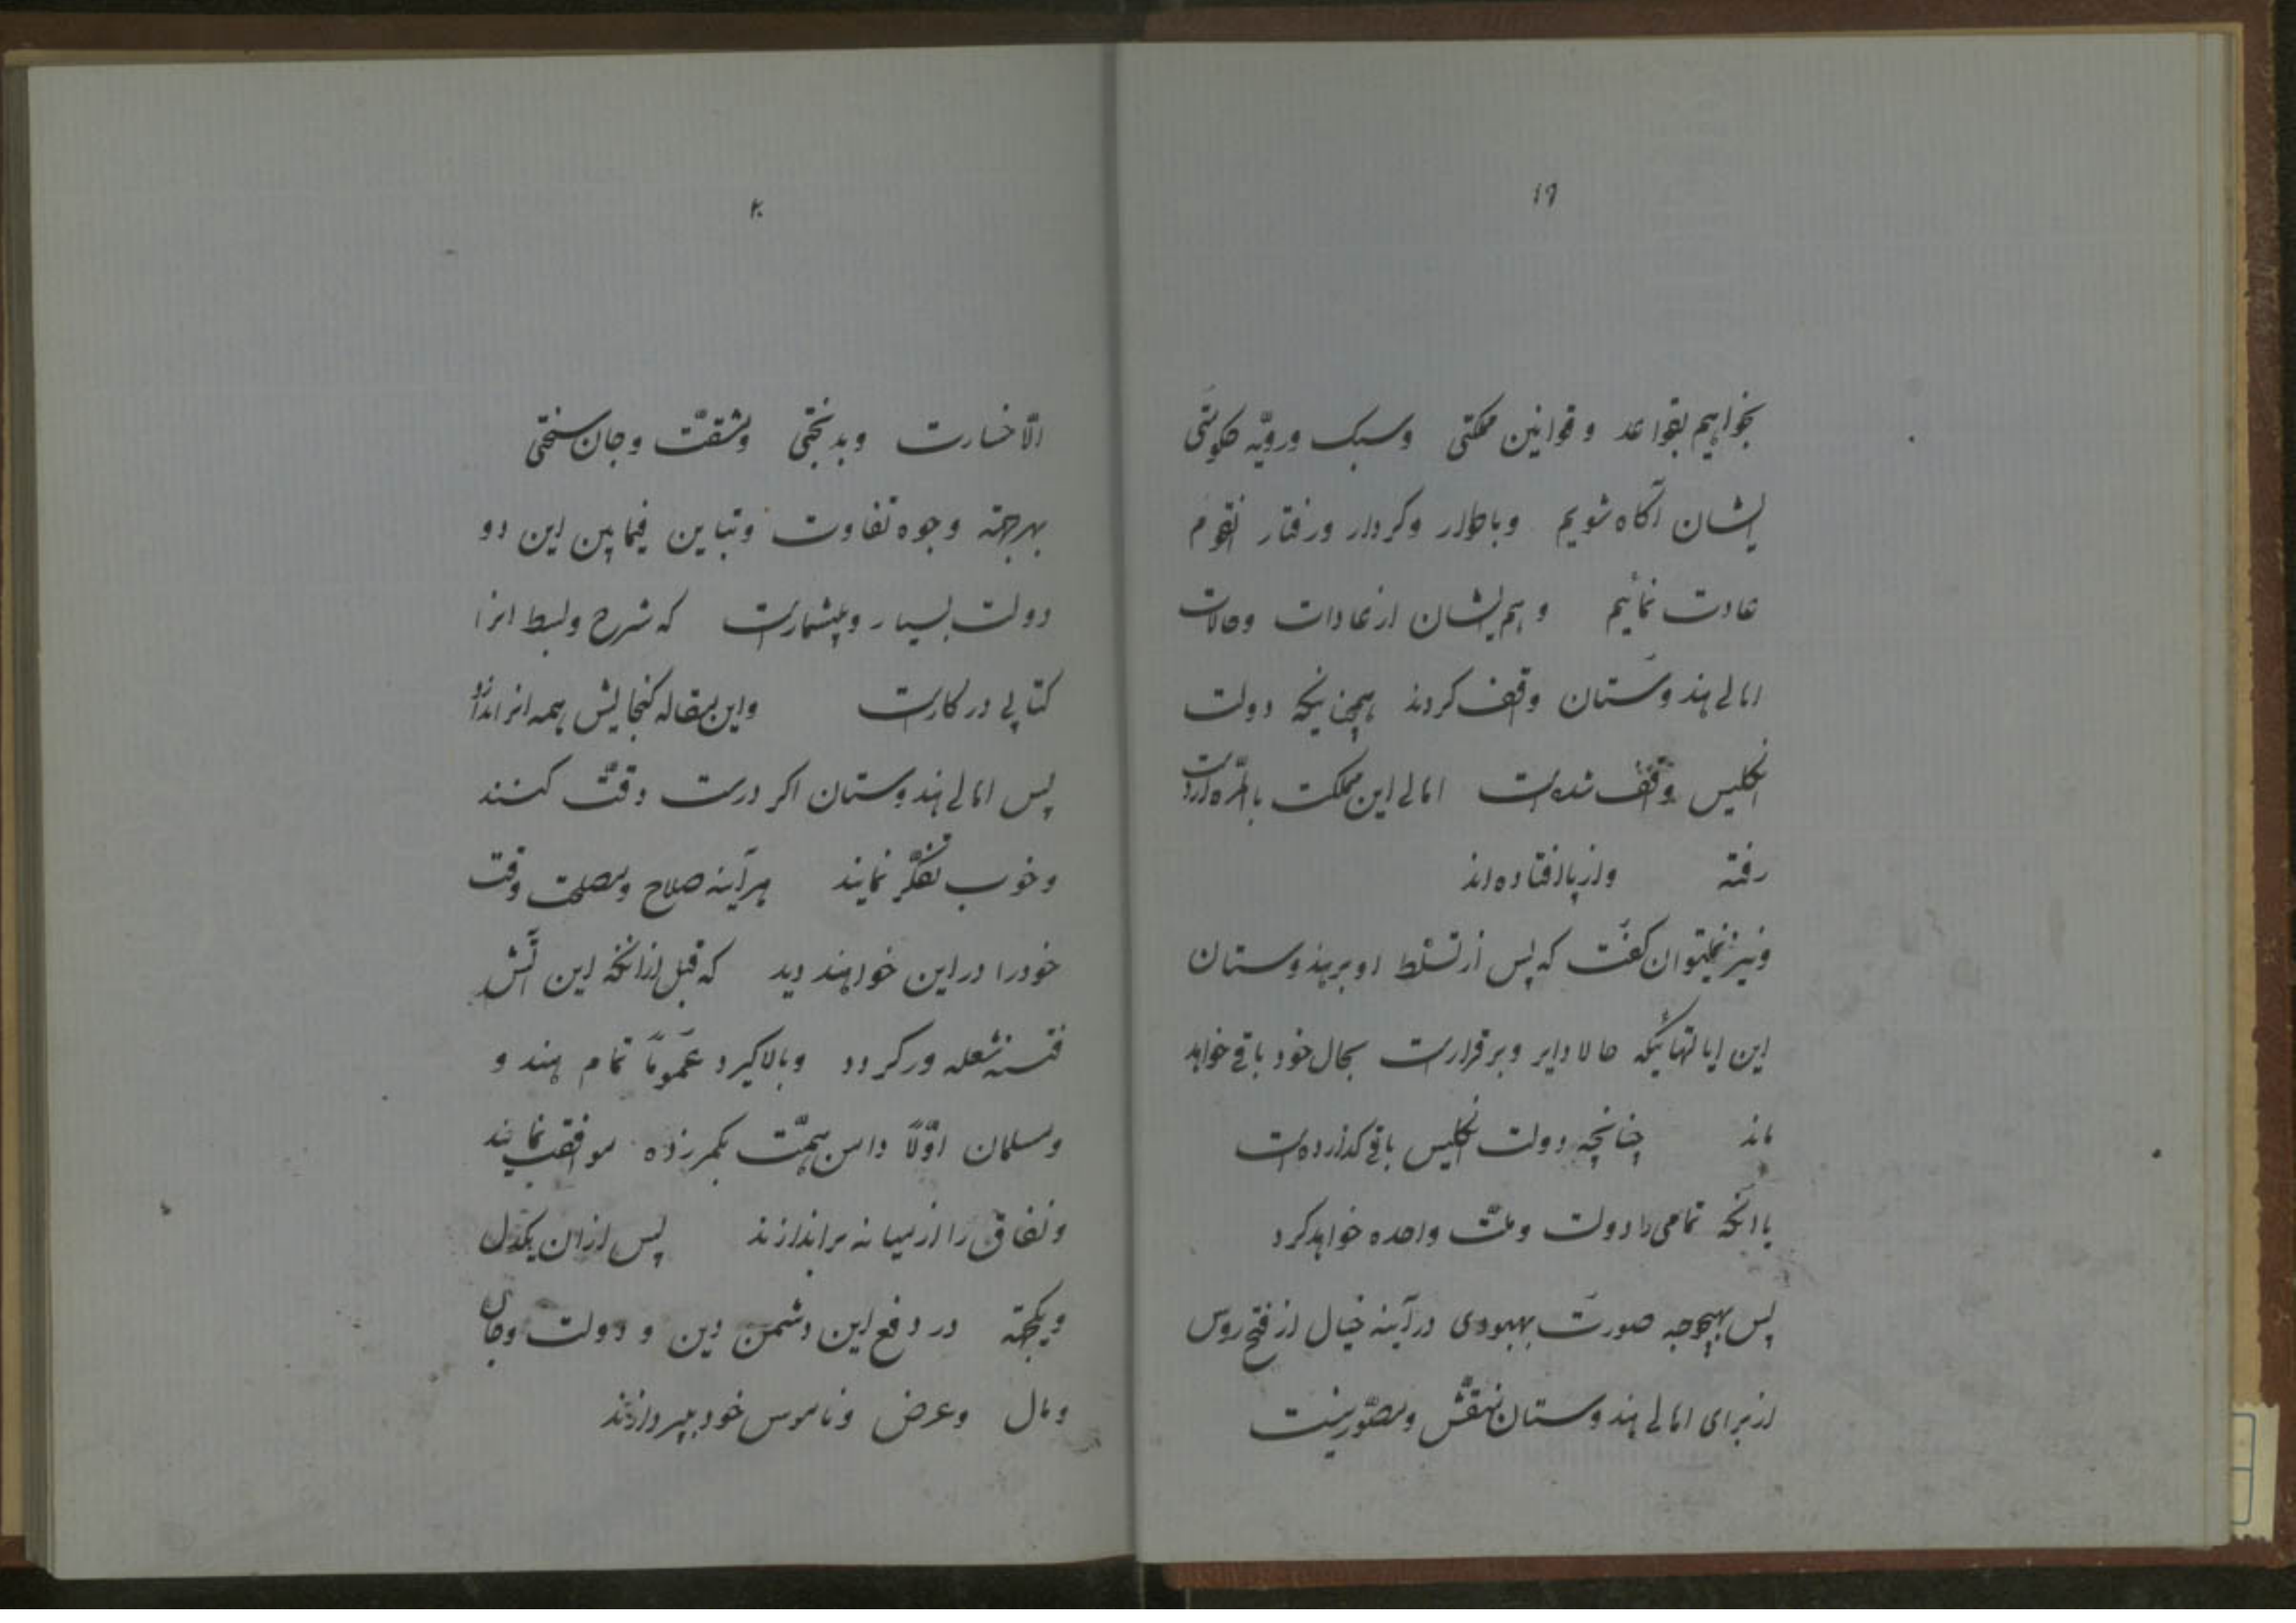 ۱۹
بخواهیم بقواعد و قوانین مملکتی وسبک ورویّه حکومتی
ایشان آگاه شویم وباطوار وکردار ورفتار انقوم
عادت نمائیم وهم ایشان از عادات وحالات
اهالی هندوستان واقف کردند همچنانکه دولت
انگلیس واقف شده است اهالی این مملکت بالمرّه از دست
رفته واز پا افتاده اند
ونیز نمیتوان کفت که پس از تسلّط او بر هندوستان
این ایالتهائیکه حالا دایر وبرقرار است بحال خود باقی خواهد
ماند چنانچه دولت انگلیس باقی گذارده است
با آنکه تمامی را دولت وملّت واحده خواهد کرد
پس بهیچوجه صورت بهبودی در آینه خیال از فتح روس
از برای اهالی هندوستان منقّش ومصوّر نیست
۲۰
الّا خسارت وبدبختی ومشقّت وجان سختی
بهرجهة وجوه تفاوت وتباین فیمابین این دو
دولت بسیار وبیشمار است که شرح وبسط انرا
کتابی در کار است واین مقاله کنجایش همه انرا ندارد
پس اهالی هندوستان اکر درست دقّت کنند
وخوب تفکّر نمایند هرآینه صلاح ومصلحت وقت
خود را در این خواهند دید که قبل از انکه این آتش
فتنه شعله ور کردد وبالا کیرد عموماً تمام هند و
ومسلمان اوّلاً دامن همّت بکمر زده موافقت نمایند
ونفاق را از میانه براندازند پس از ان یکدل
ویکجهة در دفع این دشمن دین و دولت وجان
ومال وعرض وناموس خود بپردازند